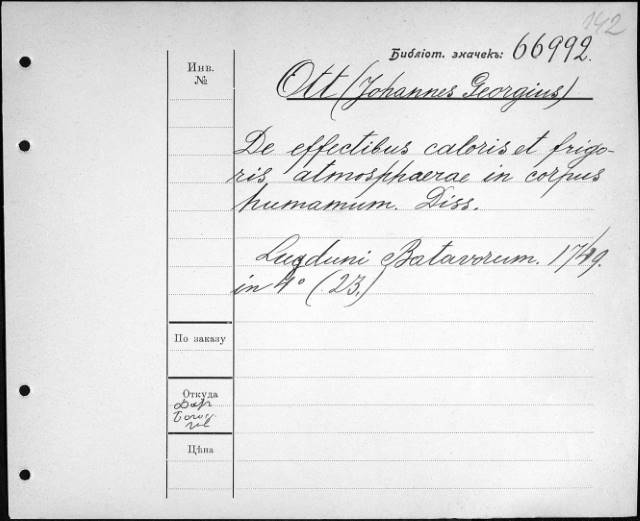 142
Библіот. значекъ: 66992.
Инв.
№
Ott (Johannes Georgius)
De effectibus caloris et frigo-
ris atmosphaerae in corpus
humamum. Diss.
Lugduni Batavorum. 1749.
in 4° (23.)
По заказу
Откуда
Цѣна